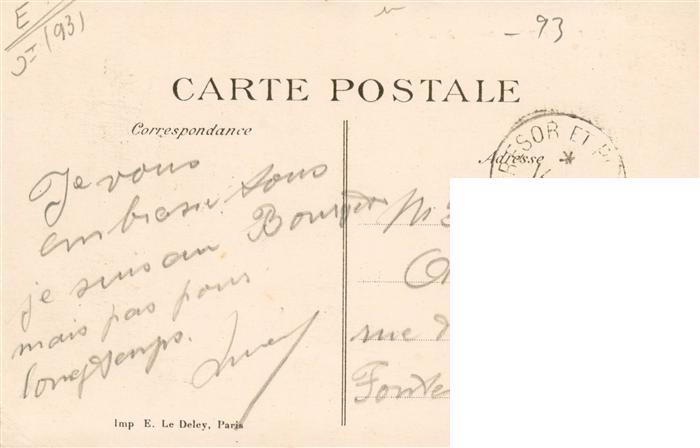 E
(93)
- 93
CARTE POSTALE
Correspondance
Adresse
RESOR ET P
Je vous
embrasse tous
je suis au Bourget
mais pas pour
longtemps.
M
rue d
Fonte
Imp E. Le Deley, Paris